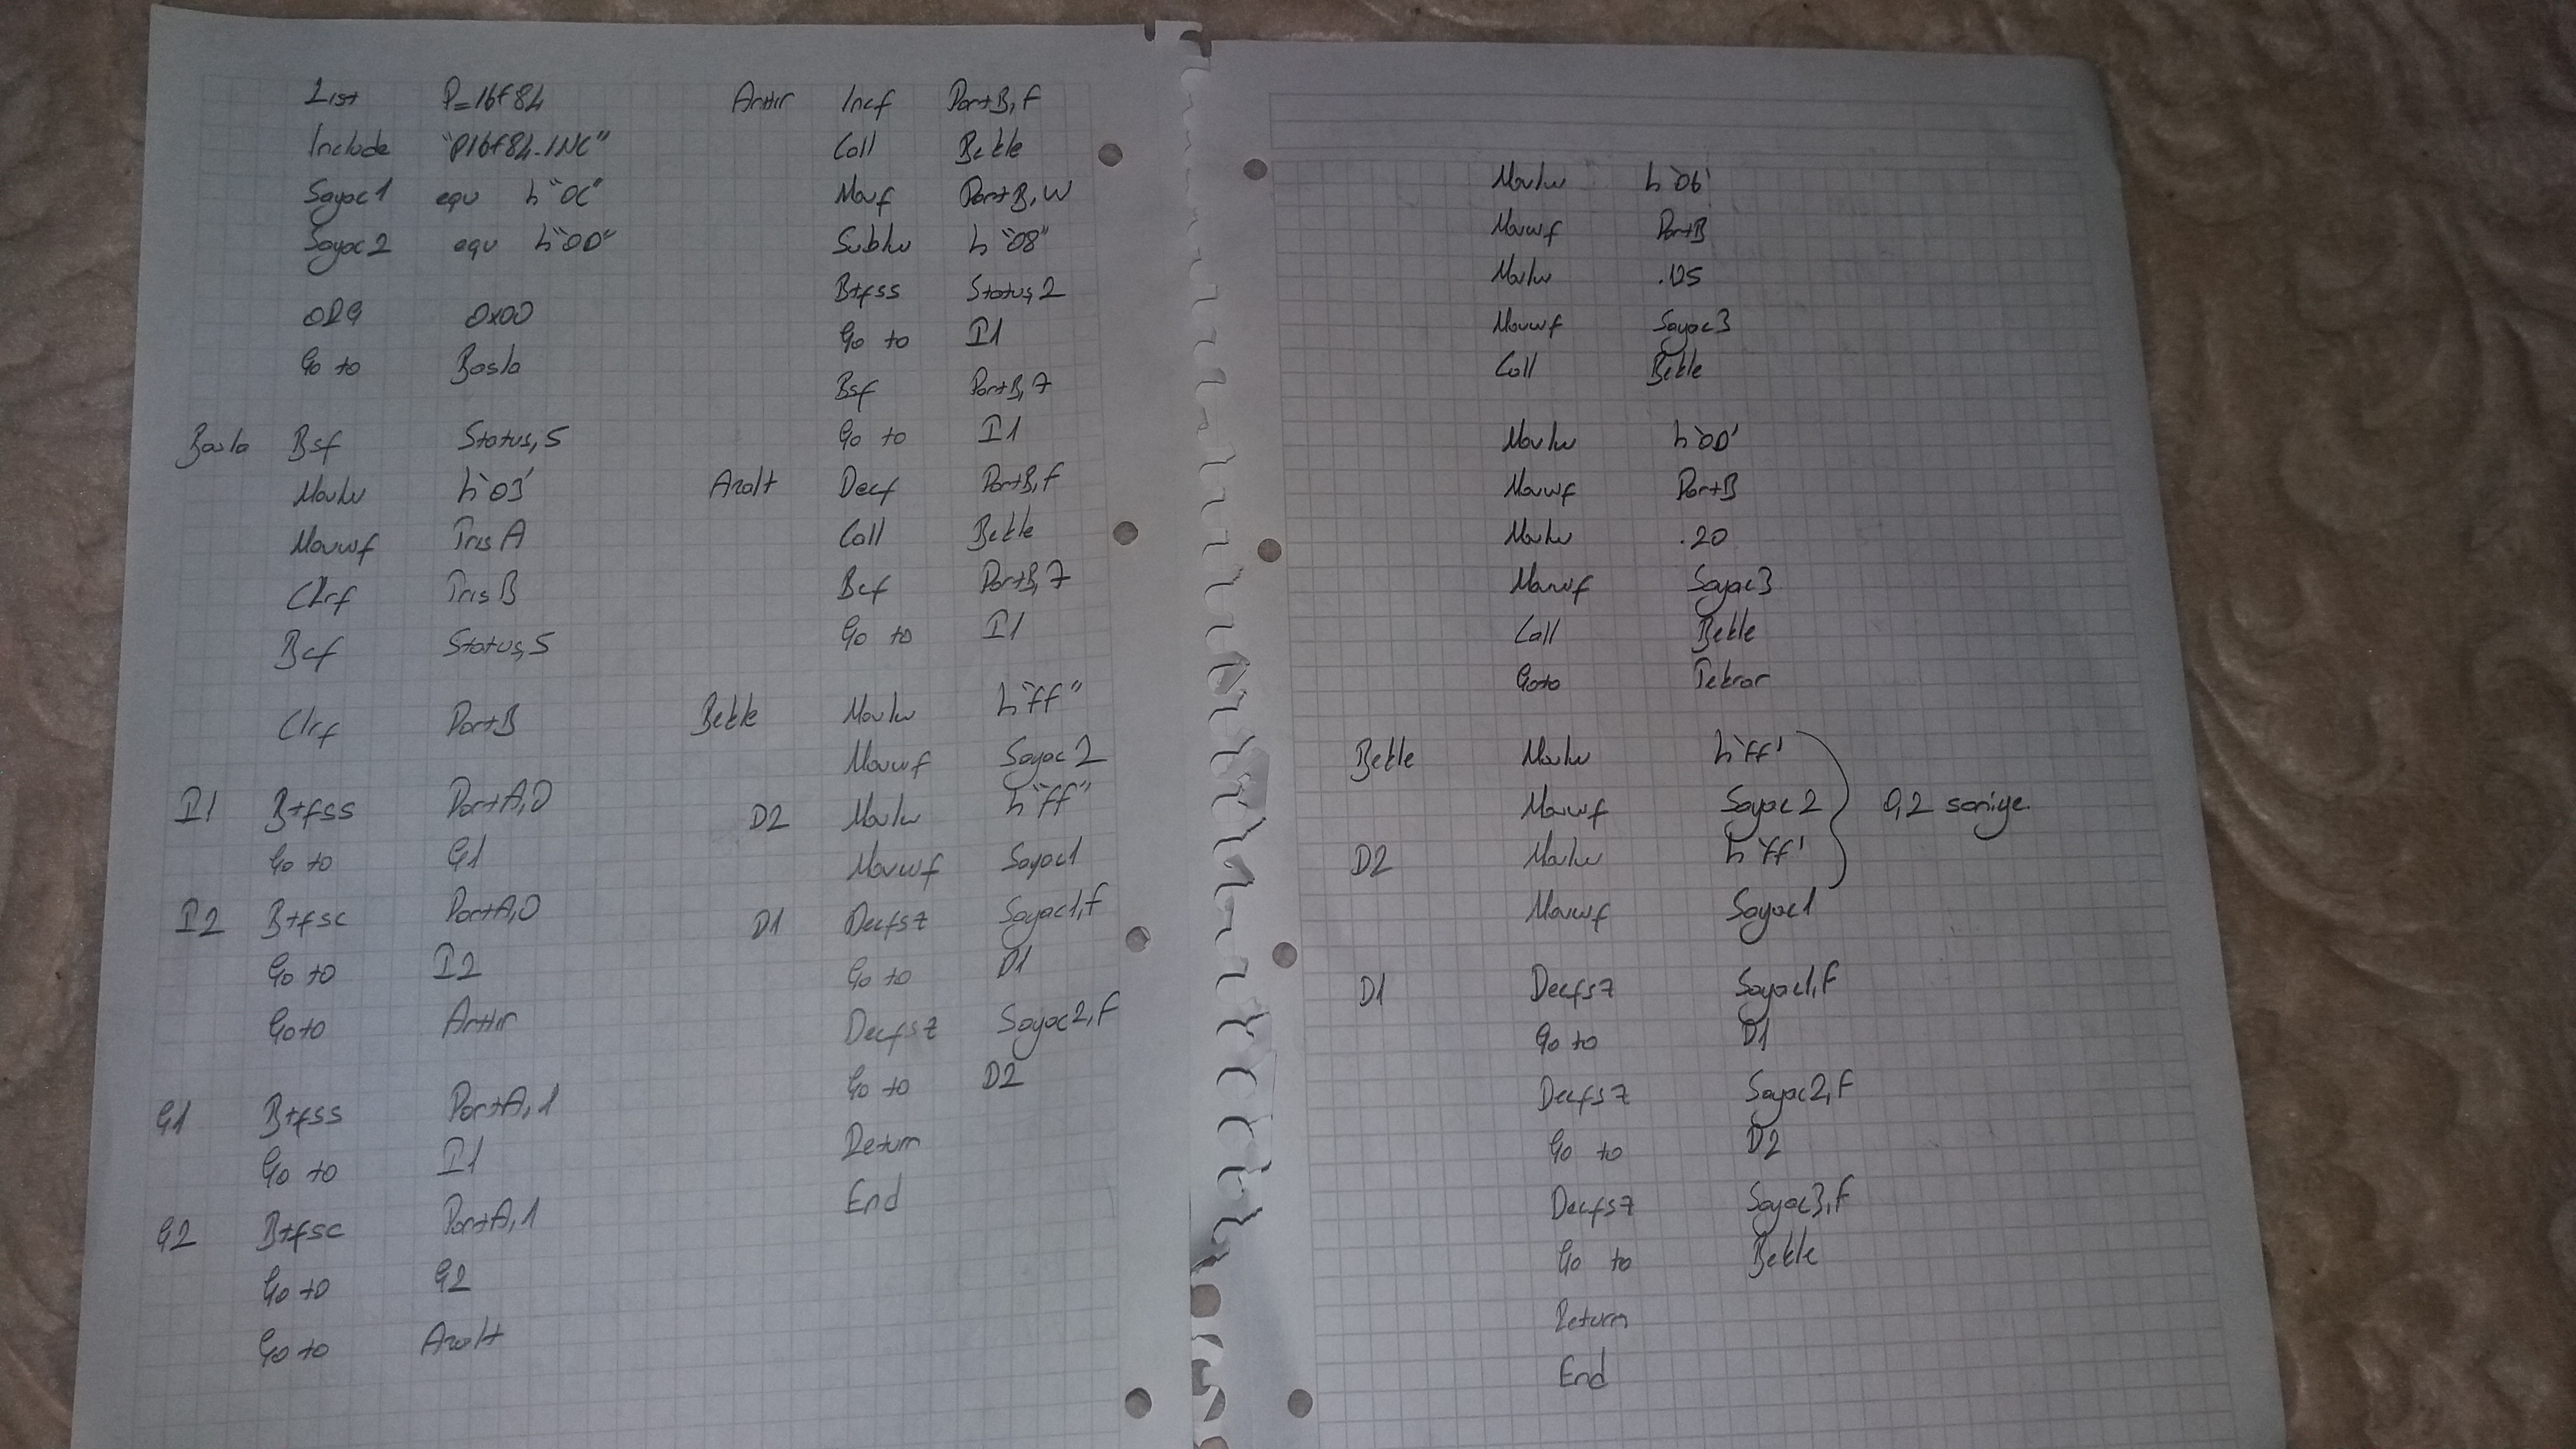 List P=16F84
Include "P16F84.INC"
Sayac1 equ h"0C"
Sayac2 equ h"0D"
ORG 0x00
Go to Basla
Basla Bsf Status,5
Movlw h'03'
Movwf TrisA
Clrf TrisB
Bcf Status,5
Clrf PortB
I1 Btfss PortA,0
Go to G1
I2 Btfsc PortA,0
Go to I2
Goto Arttır
G1 Btfss PortA,1
Go to I1
G2 Btfsc PortA,1
Go to G2
Go to Azalt
Arttır Incf PortB,F
Call Bekle
Movf PortB,W
Sublw h"08"
Btfss Status,2
Go to I1
Bsf PortB,7
Go to I1
Azalt Decf PortB,F
Call Bekle
Bcf PortB,7
Go to I1
Bekle Movlw h"ff"
Movwf Sayac2
D2 Movlw h"ff"
Movwf Sayac1
D1 Decfsz Sayac1,F
Go to D1
Decfsz Sayac2,F
Go to D2
Return
End
Movlw h'06'
Movwf PortB
Movlw
Movwf Sayac3
Call Bekle
Movlw h'00'
Movwf PortB
Movlw .20
Movwf Sayac3
Call Bekle
Goto Tekrar
Bekle Movlw h'ff'
Movwf Sayac2 0,2 saniye.
D2 Movlw h'ff'
Movwf Sayac1
D1 Decfsz Sayac1,F
Go to D1
Decfsz Sayac2,F
Go to D2
Decfsz Sayac3,F
Go to Bekle
Return
End